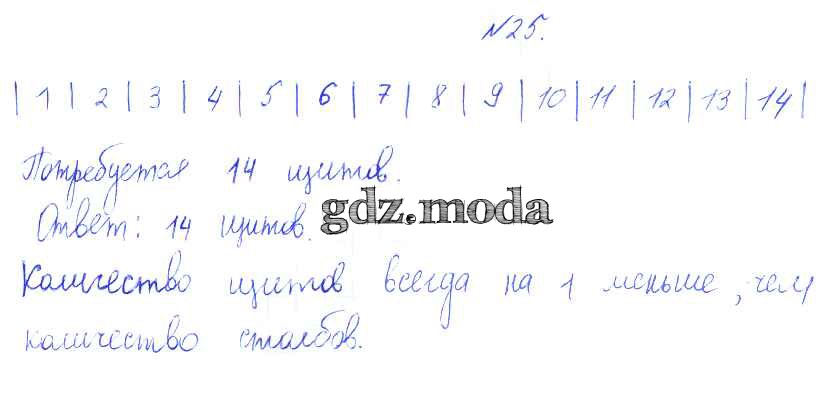 №25.
| 1 | 2 | 3 | 4 | 5 | 6 | 7 | 8 | 9 | 10 | 11 | 12 | 13 | 14 |
Потребуется 14 щитов.
Ответ: 14 щитов.
gdz.moda
Количество щитов всегда на 1 меньше, чем
количество столбов.